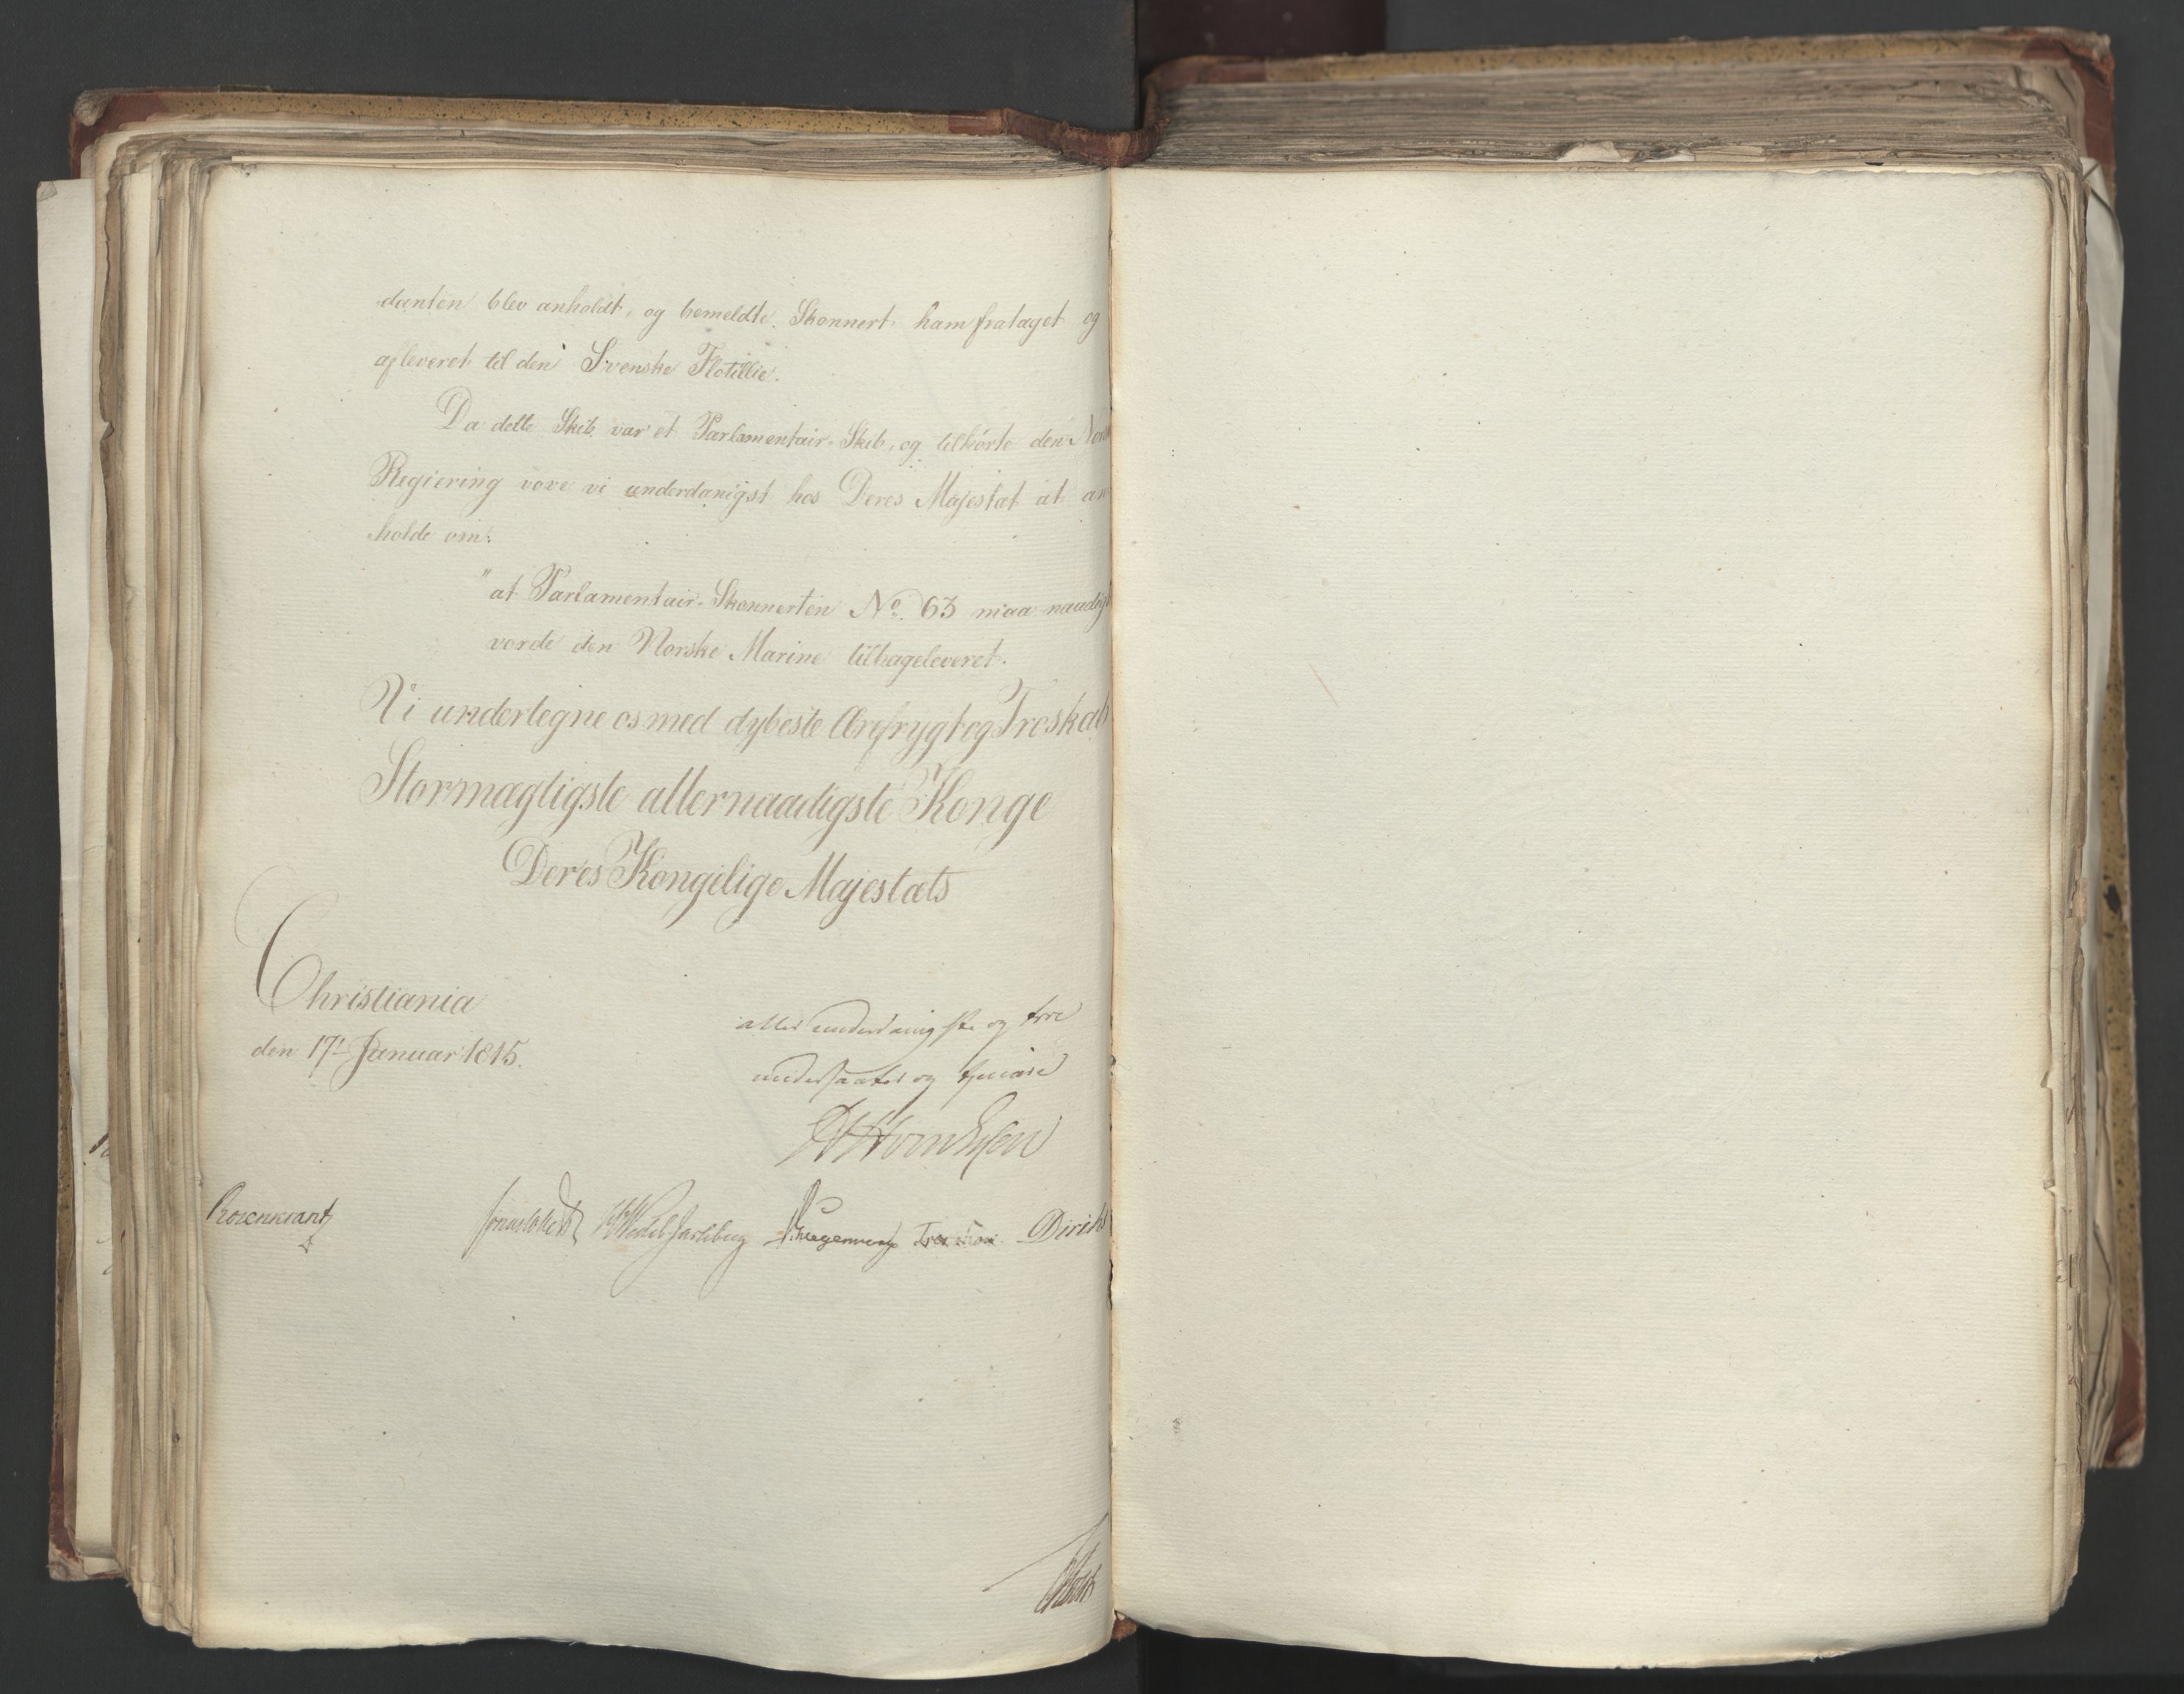 danten blev anholdt, og bemeldte Skonnert ham frataget og
afleveret til den Svenske Flotillie.
Da dette Skib var et Parlamentair-Skib, og tilhørte den
Regiering vove vi underdanigst hos Deres Majestæt at an
holde om:
"at Parlamentair-Skonnerten No. 63 maa
vorde den Norske Marine tilbageleveret.
Vi undertegne os med dybeste Ærefrygt og Troskab
Stormægtigste allernaadigste Konge
Deres Kongelige Majestæts
Christiania
den 17t Januar 1815.
allerunderdanigste og troe
undersaatter og tjenere
Rosenkrantz Sommerhielm HWedel Jarlsberg Kroegenwegn Treschow Diriks